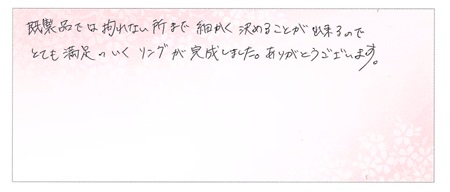 既製品では拘れない所まで細かく決めることが出来るので
とても満足のいくリングが完成しました。ありがとうございます。